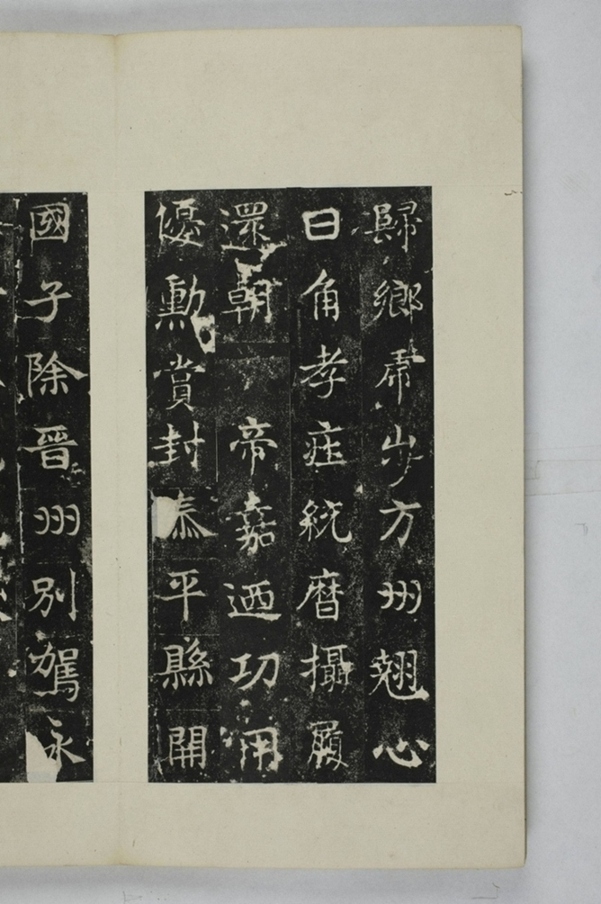 歸鄉虎步方州翹心
日角孝莊統曆攝履
還朝　帝嘉迺功用
優勳賞封泰平縣開
國子除晉州別駕永